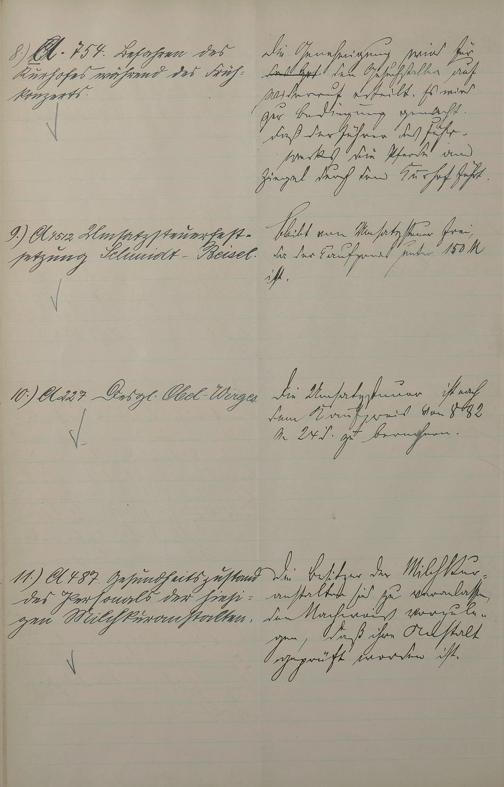 8) A. 754. Befahren des
Kurhofes während des Früh-
konzerts.
Die Genehigung wird für
den Geschützten auf
Widerruf erteilt. Es wird
zur Bedingung gemacht,
daß der Führer des Fuhr-
werks die Pferde am
Ziegel durch den Kurhof führt.
9.) A 1512 Umsatzsteuerfest-
setzung Schmidt-Reisel.
Bleibt von Umsatzsteuer frei,
da der Kaufpreis unter 150 M
ist.
10.) A 227 Desgl. Obel-Wirges
Die Umsatzsteuer ist nach
dem Kaufpreis von 882
M 24 zu berechnen.
11.) A 487 Gesundheitszustand
des Personals der hiesi-
gen Milchkuranstalten.
Die Besitzer der Milchkur-
anstalten sind zu veranlassen,
den Nachweis vorzule-
gen, daß ihre Anstalt
geprüft worden ist.